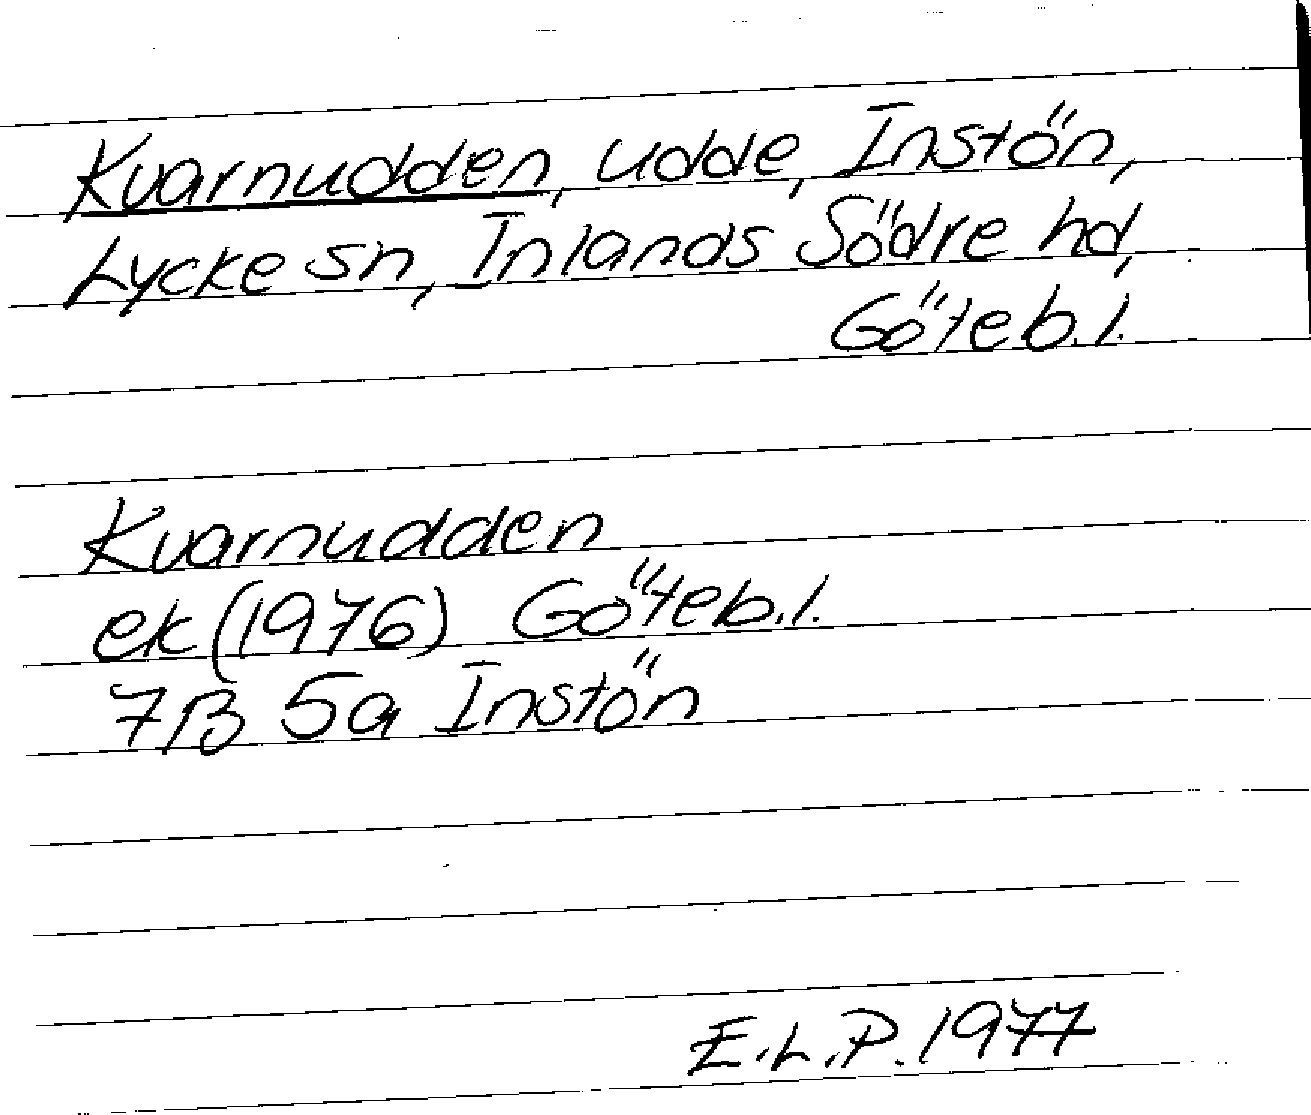 Kvarnudden, udde, Instön,
Lycke sn, Inlands Södre hd,
Göteb.l.
Kvarnudden
ek (1976) Göteb.l.
7B 5a Instön
E.L.P. 1977